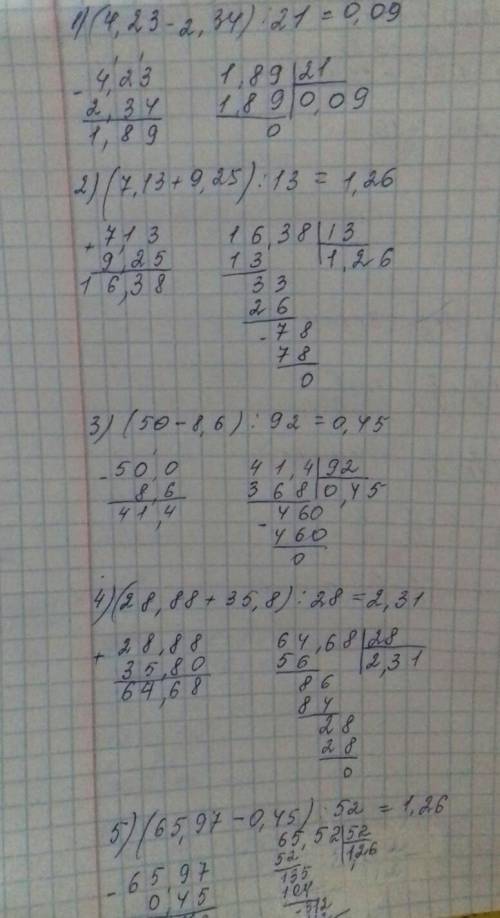 1) (4,23 - 2,34) : 21 = 0,09
- 4,23      1,89 | 21
2,34      1,89 | 0,09
1,89      0
2) (7,13 + 9,25) : 13 = 1,26
+ 7,13      16,38 | 13
9,25      13 | 1,26
16,38      33
26
- 78
78
0
3) (50 - 8,6) : 92 = 0,45
- 50,0      41,4 | 92
8,6      368 | 0,45
41,4      - 460
460
0
4) (28,88 + 35,8) : 28 = 2,31
+ 28,88      64,68 | 28
35,80      56 | 2,31
64,68      86
84
28
28
0
5) (65,97 - 0,45) : 52 = 1,26
65,52 | 52
- 65,97      52 | 1,26
0,45      135
104
- 312